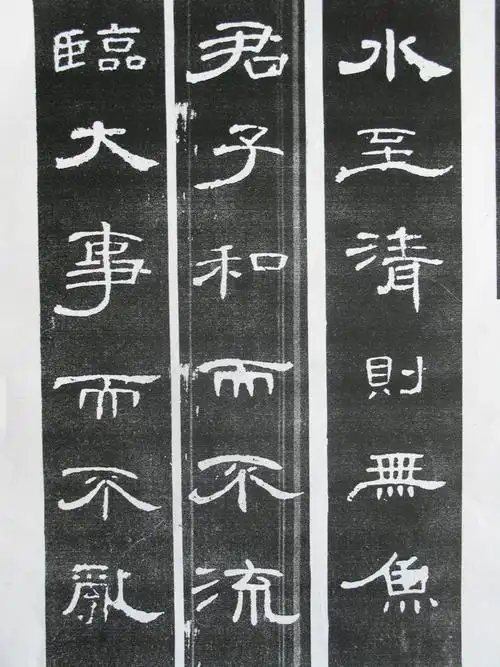 水至清則無魚
君子和而不流
臨大事而不亂